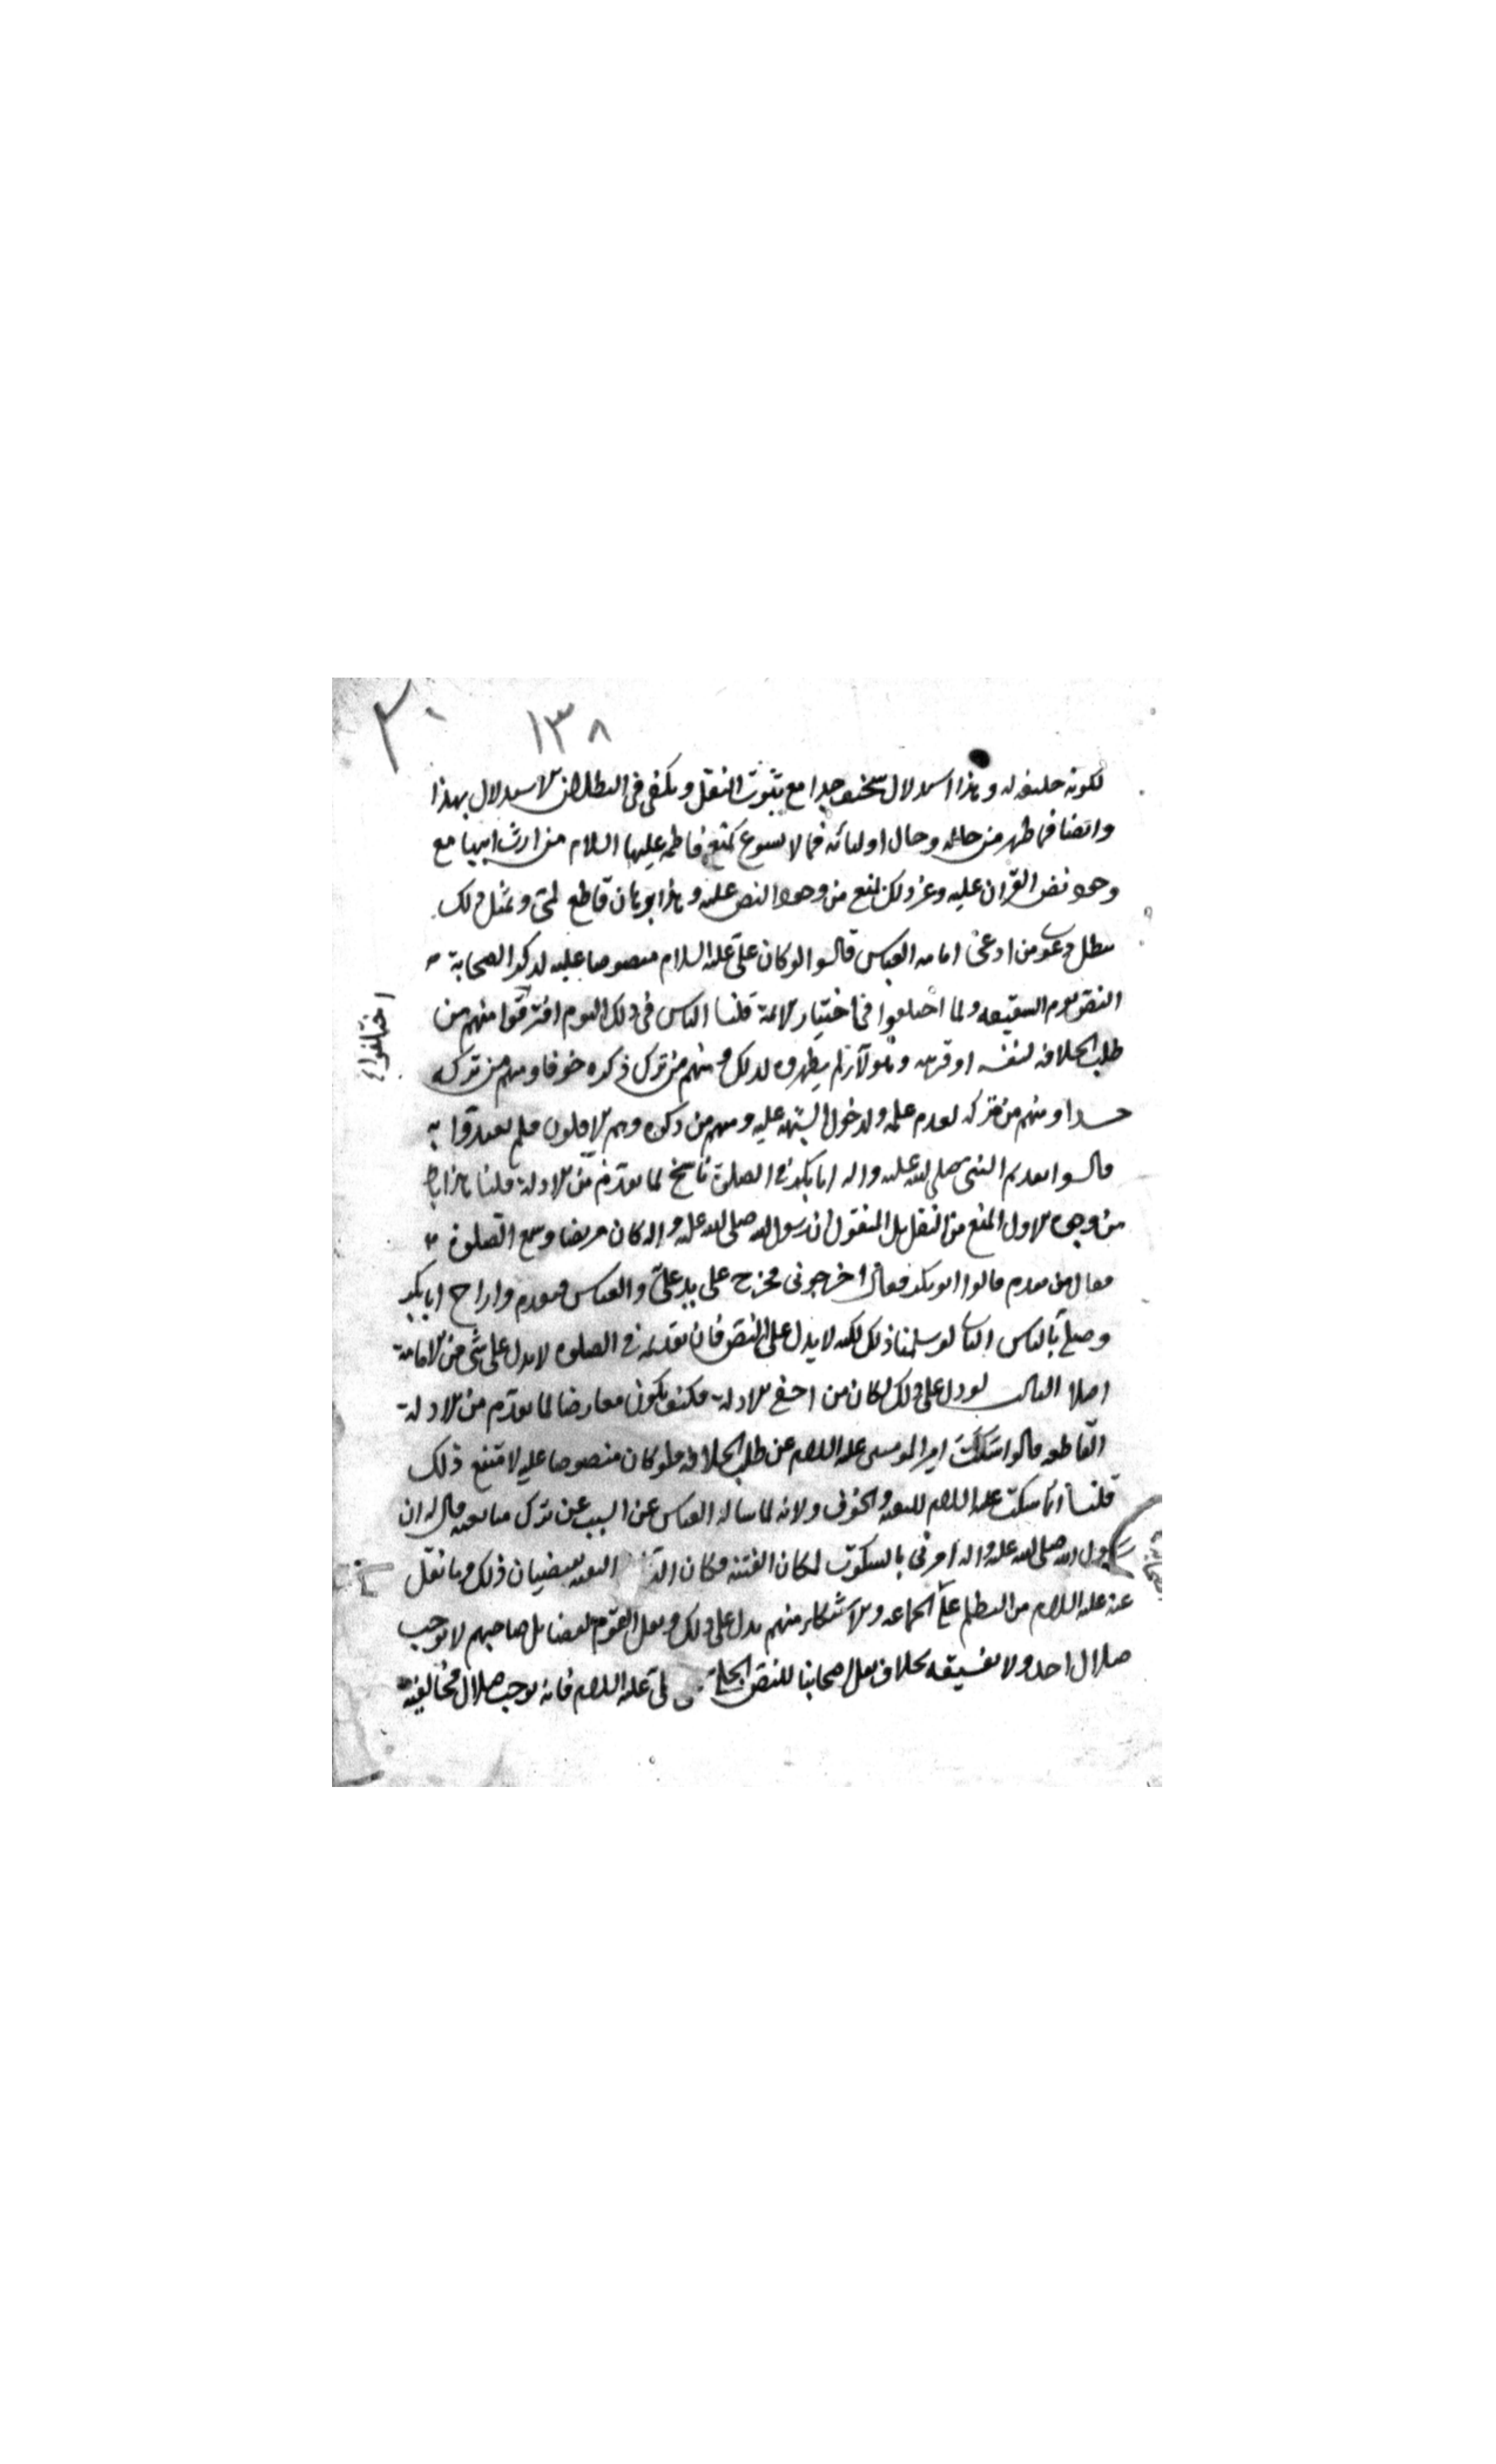 ١٣٨
لكونه خليفه له وهذا استدلال سخيف جدا مع ثبوت النقل ويكفى فى البطلان الاستدلال بهذا
وايضا فما ظهر من حاله وحال اوليائه فما لا يسوغ كمنع فاطمه عليها السلام من ارث ابيها مع
وجود نص القران عليه وغير ذلك لمنع من وجود النص عليه وهذا برهان قاطع لمى وبمثل ذلك
يبطل دعوى من ادعى امامه العباس قالوا لو كان على عليه السلام منصوصا عليه لذكر الصحابة
النص يوم السقيفه ولما اختلفوا فى اختيار الائمة قلنا الناس فى ذلك اليوم افترقوا منهم من
اختلفوا
طلب الخلافه لنفسه او قريبه وهؤلاء لم يظهروه لذلك ومنهم من ترك ذكره خوفا ومنهم من تركه
حسدا ومنهم من تركه لعدم علمه ولدخول الشبهه عليه ومنهم من ذكره وهم الاقلون فلم يعبوا به
قالوا تقديم النبى صلى الله عليه واله ابا بكر فى الصلوة ناسخ لما تقدم من الادلة قلنا هذا باطل
من وجوه الاول المنع من النقل بل المنقول ان رسول الله صلى الله عليه واله كان مريضا وسمع الصلوة
فقال من تقدم قالوا ابو بكر فقال اخرجونى فخرج على يد على والعباس فتقدم وازاح ابا بكر
وصلى بالناس الثانى لو سلمنا ذلك لكنه لا يدل على النص فان تقديمه فى الصلوه لا يدل على شى من الامامة
اصلا الثالث لو دل على ذلك لكان من اخفى الادلة فكيف يكون معارضا لما تقدم من الادلة
القاطعه قالوا سكت امير المومنين عليه السلام عن طلب الخلافه فلو كان منصوصا عليه لامتنع ذلك
قلنا انما سكت عليه السلام للتقيه والخوف ولانه لما ساله العباس عن السبب عن ترك مبايعته قال له ان
رسول الله صلى الله عليه واله امرنى بالسكوت لمكان الفتنه فكان التقيه يقتضيان ذلك وما نقل
عنه عليه السلام من التظلم على الجماعه والاستنكار منهم يدل على ذلك ونقل القوم لفضايل صاحبهم لا يوجب
ضلال احد ولا تفسيقه بخلاف نقل اصحابنا للنص الجلى على على عليه السلام فانه يوجب ضلال مخالفيه